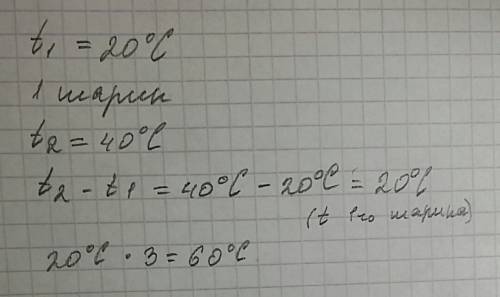 t₁ = 20°C
1 шарик
t₂ = 40°C
t₂ - t₁ = 40°C - 20°C = 20°C
(t 1го шарика)
20°C · 3 = 60°C